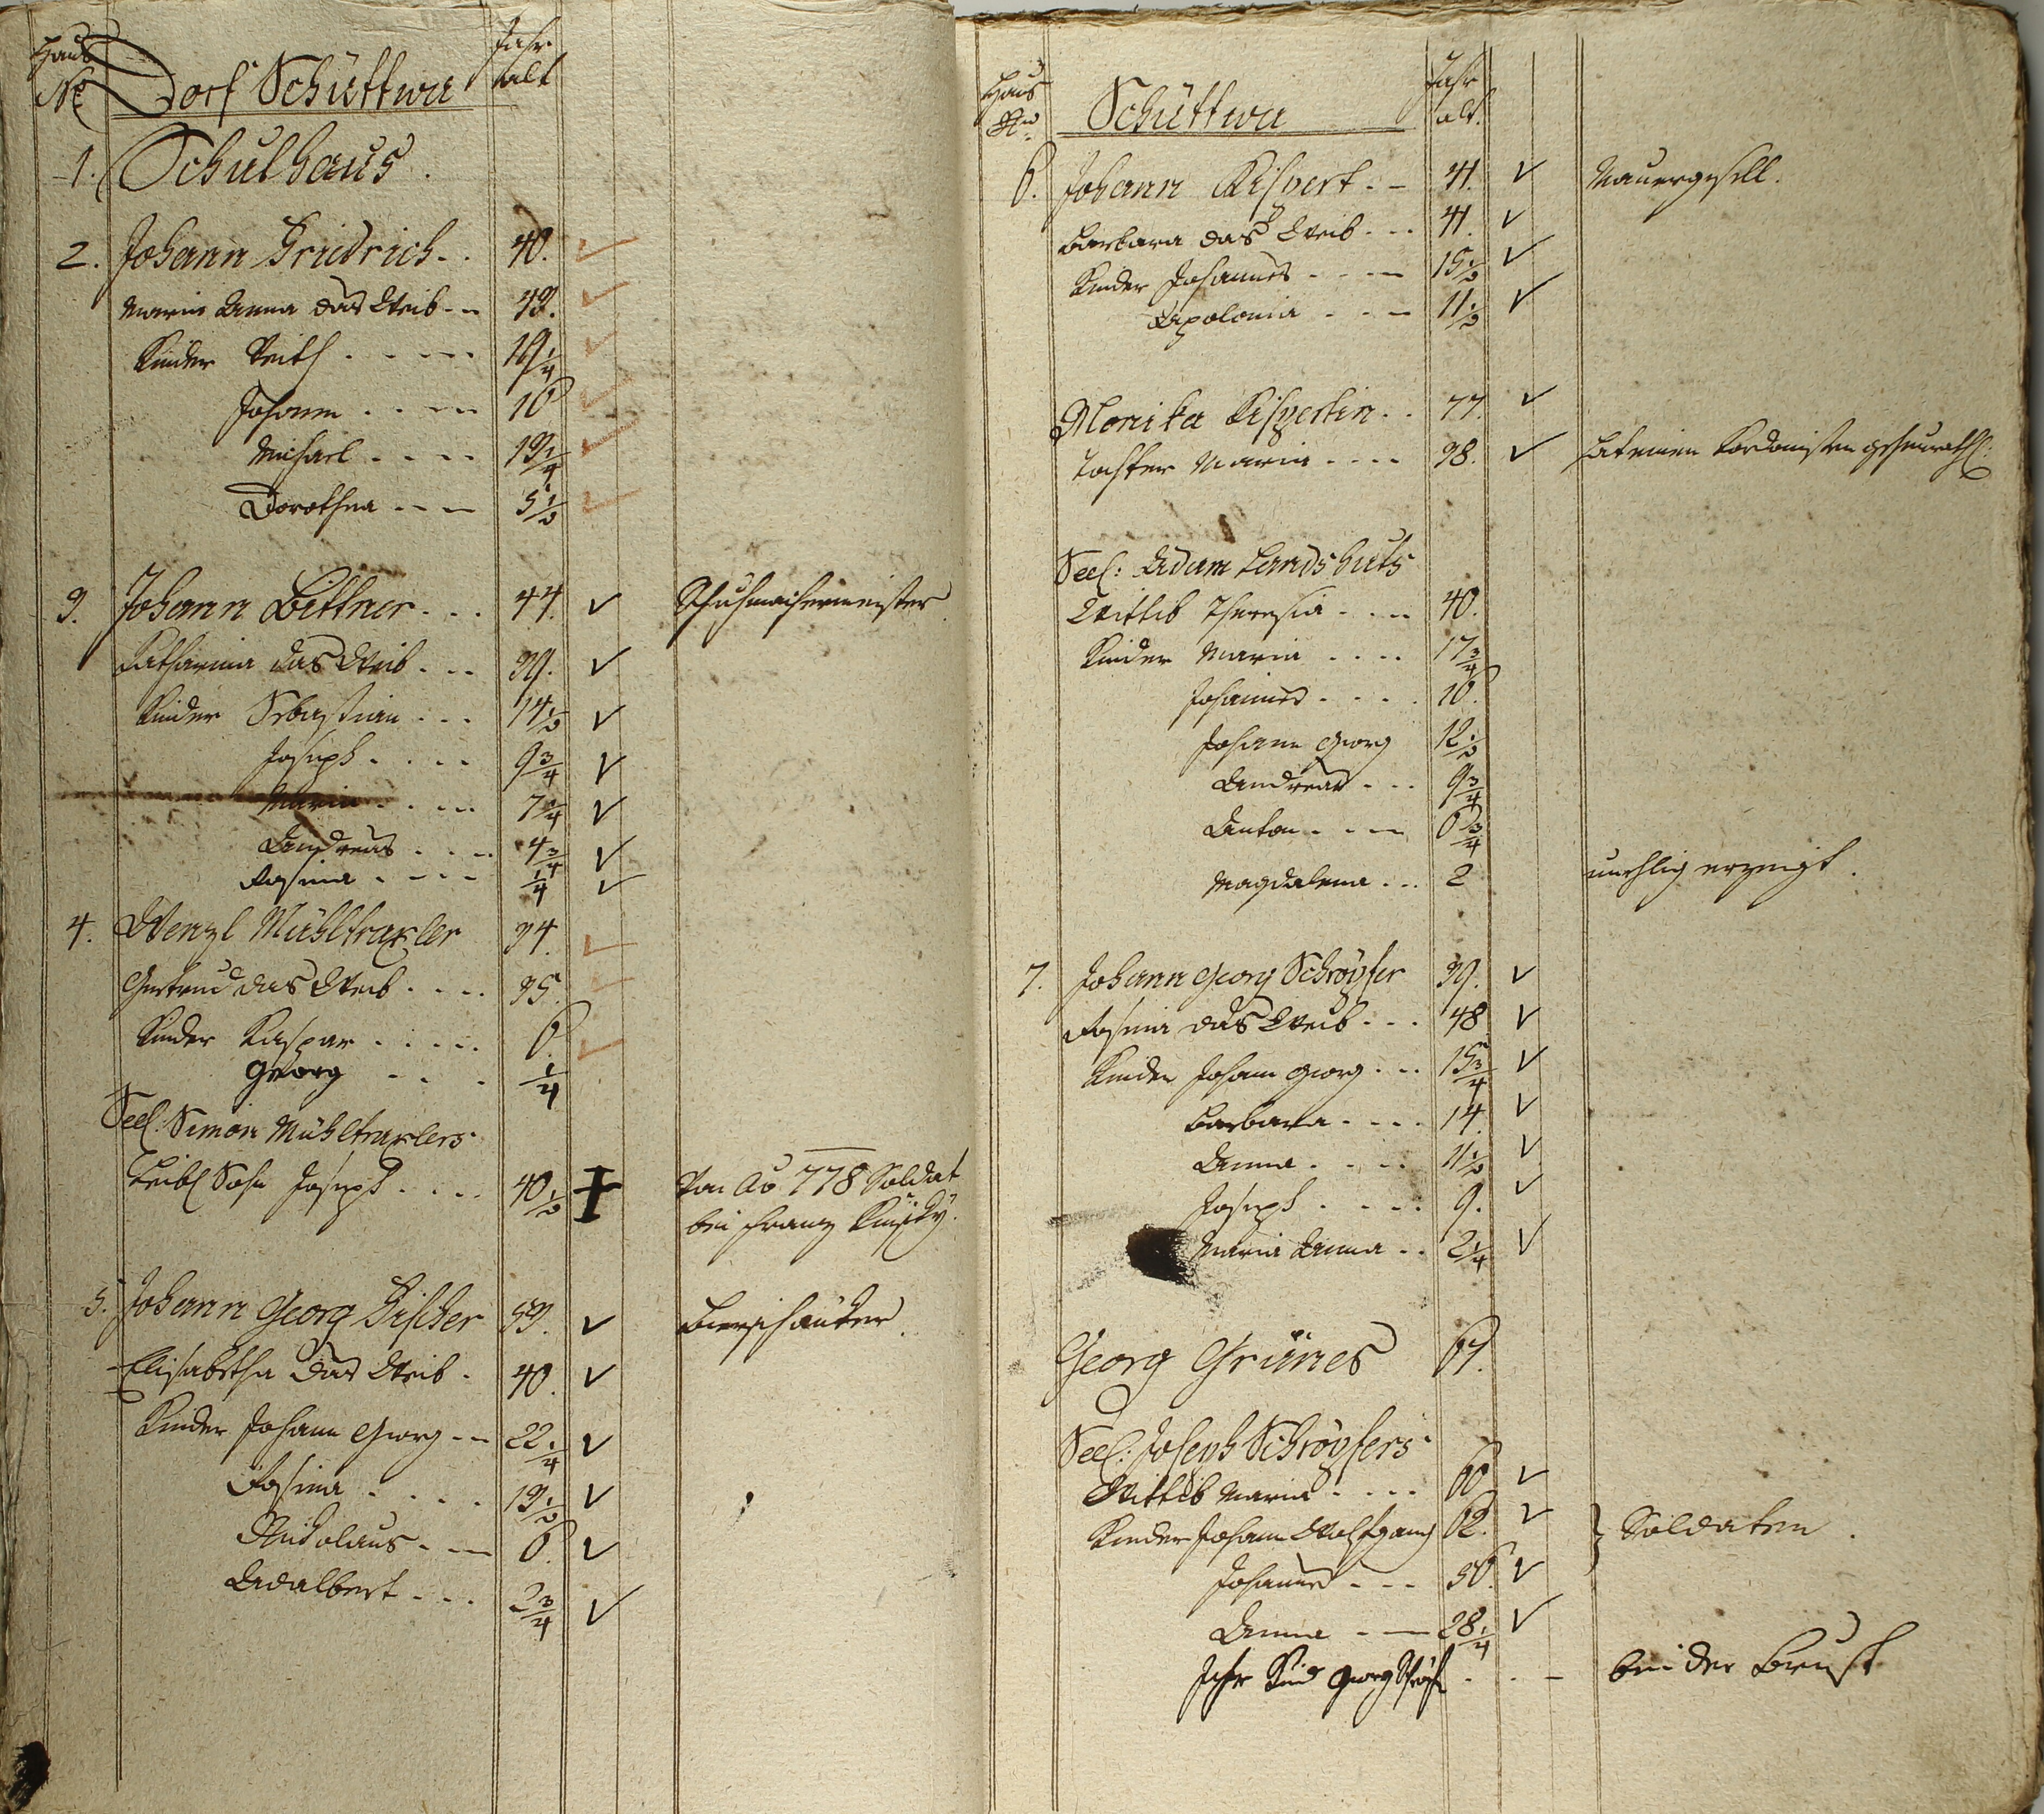 Haus
No
Dorf Schüttwa
Jahr
alt
1. Schulhaus.
2. Johann Friedrich 40.
Maria Anna das Weib 43.
Kinder Veith 19 1/4
Johann 16
Michael 13 1/4
Dorothea 5 1/2
3. Johann Bittner 44. Schuhmachermeister
Katharina das Weib 39.
Kinder Sebastian 14 1/2
Joseph 9 3/4
Maria 7 1/4
Andreas 4 3/4
Rosina 1/4
4. Wenzl Mühltraxler 34.
Gertrud das Weib 35.
Kinder Kaspar 6.
Georg 1/4
Seel. Simon Mühltraxlers
Leibl Sohn Joseph 40 1/2 Von Ao 778 Soldat
bei Franz Kinsky.
5. Johann Georg Fischer 53. Bierschänker.
Elisabetha das Weib 40.
Kinder Johann Georg 22 1/4
Rosina 13 1/2
Nickolaus 6.
Adalbert 2 3/4
Haus
Nro
Schüttwa
Jahr
alt.
6. Johann Rispert 41. Maurergesell.
Barbara das Weib 41.
Kinder Johannes 15 1/2
Apolonia 11 1/2
Monika Rispertin 77.
Tochter Maria 38. hat einen Kordonisten geheurath
Seel: Adam Landshuts
Wittib Theresia 40.
Kinder Maria 17 3/4
Johannes 16.
Johann Georg 12 1/2
Andreas 9 3/4
Anton 6 3/4
Magdalena 2 unehlig erzeigt.
7. Johann Georg Schröpfer 39.
Rosina das Weib 48
Kinder Johann Georg 15 3/4
Barbara 14.
Anna 11 1/2
Joseph 9.
Maria Anna 2 1/4
Georg Grünes 67.
Seel: Joseph Schröpfers
Wittib Maria 66
Kinder Johann Wolfgang 62. } Soldaten.
Johannes 36.
Anna 28 1/4
Ihr Kind Georg bei der Brust